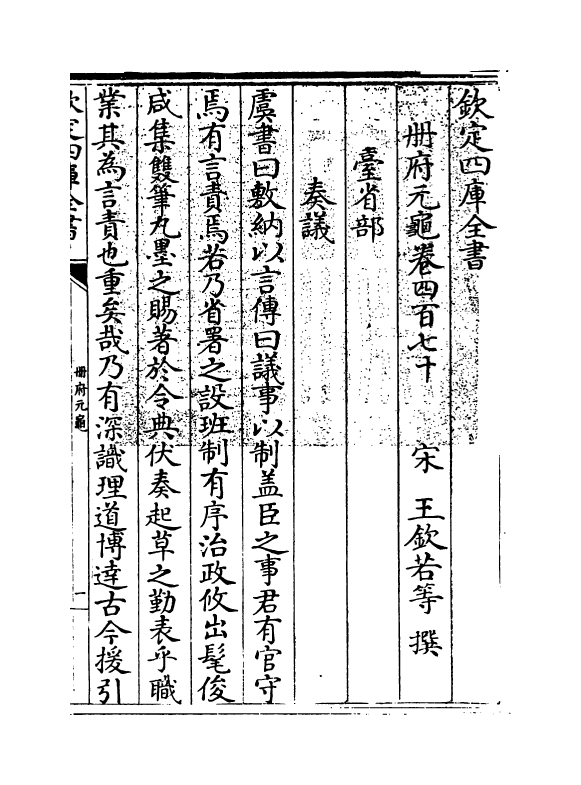 欽定四庫全書
冊府元龜卷四百七十 宋 王欽若等 撰
臺省部
奏議
虞書曰敷納以言傳曰議事以制盖臣之事君有官守
焉有言責焉若乃省署之設班制有序治政攸出髦俊
咸集雙筆丸墨之賜著於令典伏奏起草之勤表乎職
業其為言責也重矣哉乃有深識理道博達古今援引
欽定四庫全書
冊府元龜
一